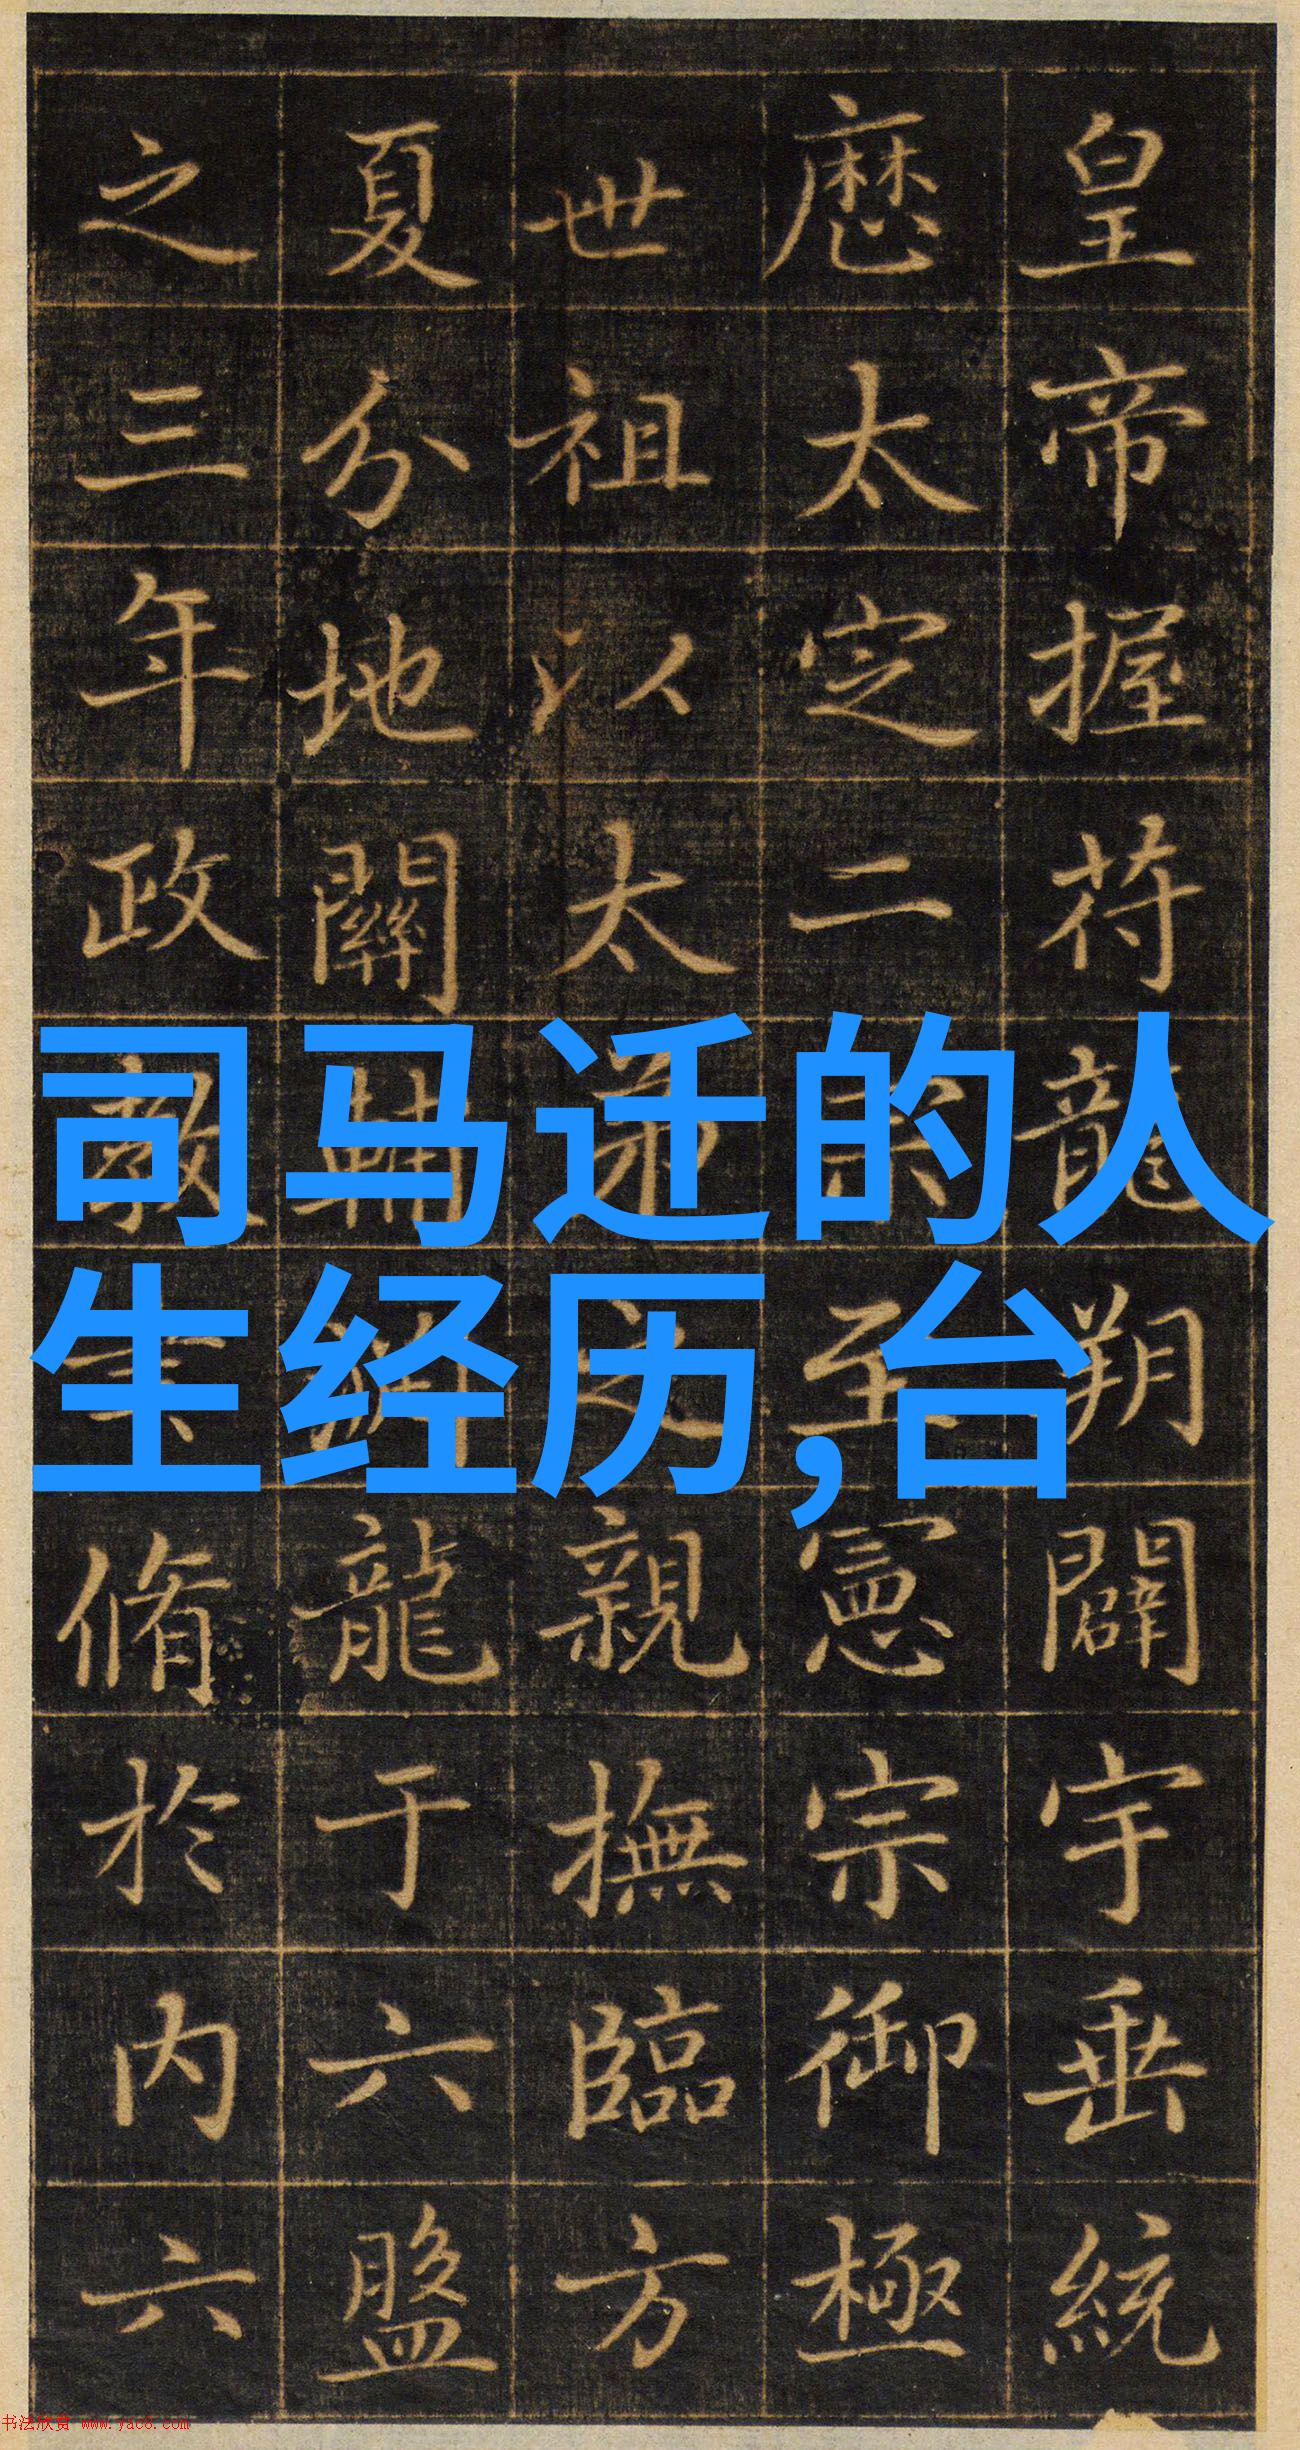 皇帝握符龍朔闢宇垂統
厯太定二至憲宗御極
世祖以太弟之親撫臨方
夏分地關輔龍于六盤
之三年政教脩於内六
司马迁的人
生经历,台
书法欣赏 www.yac8.com